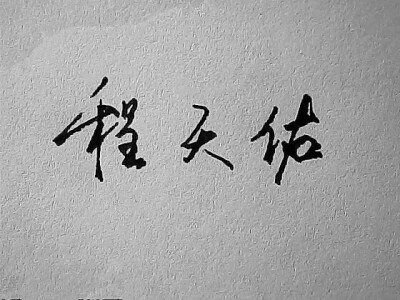 程天佑